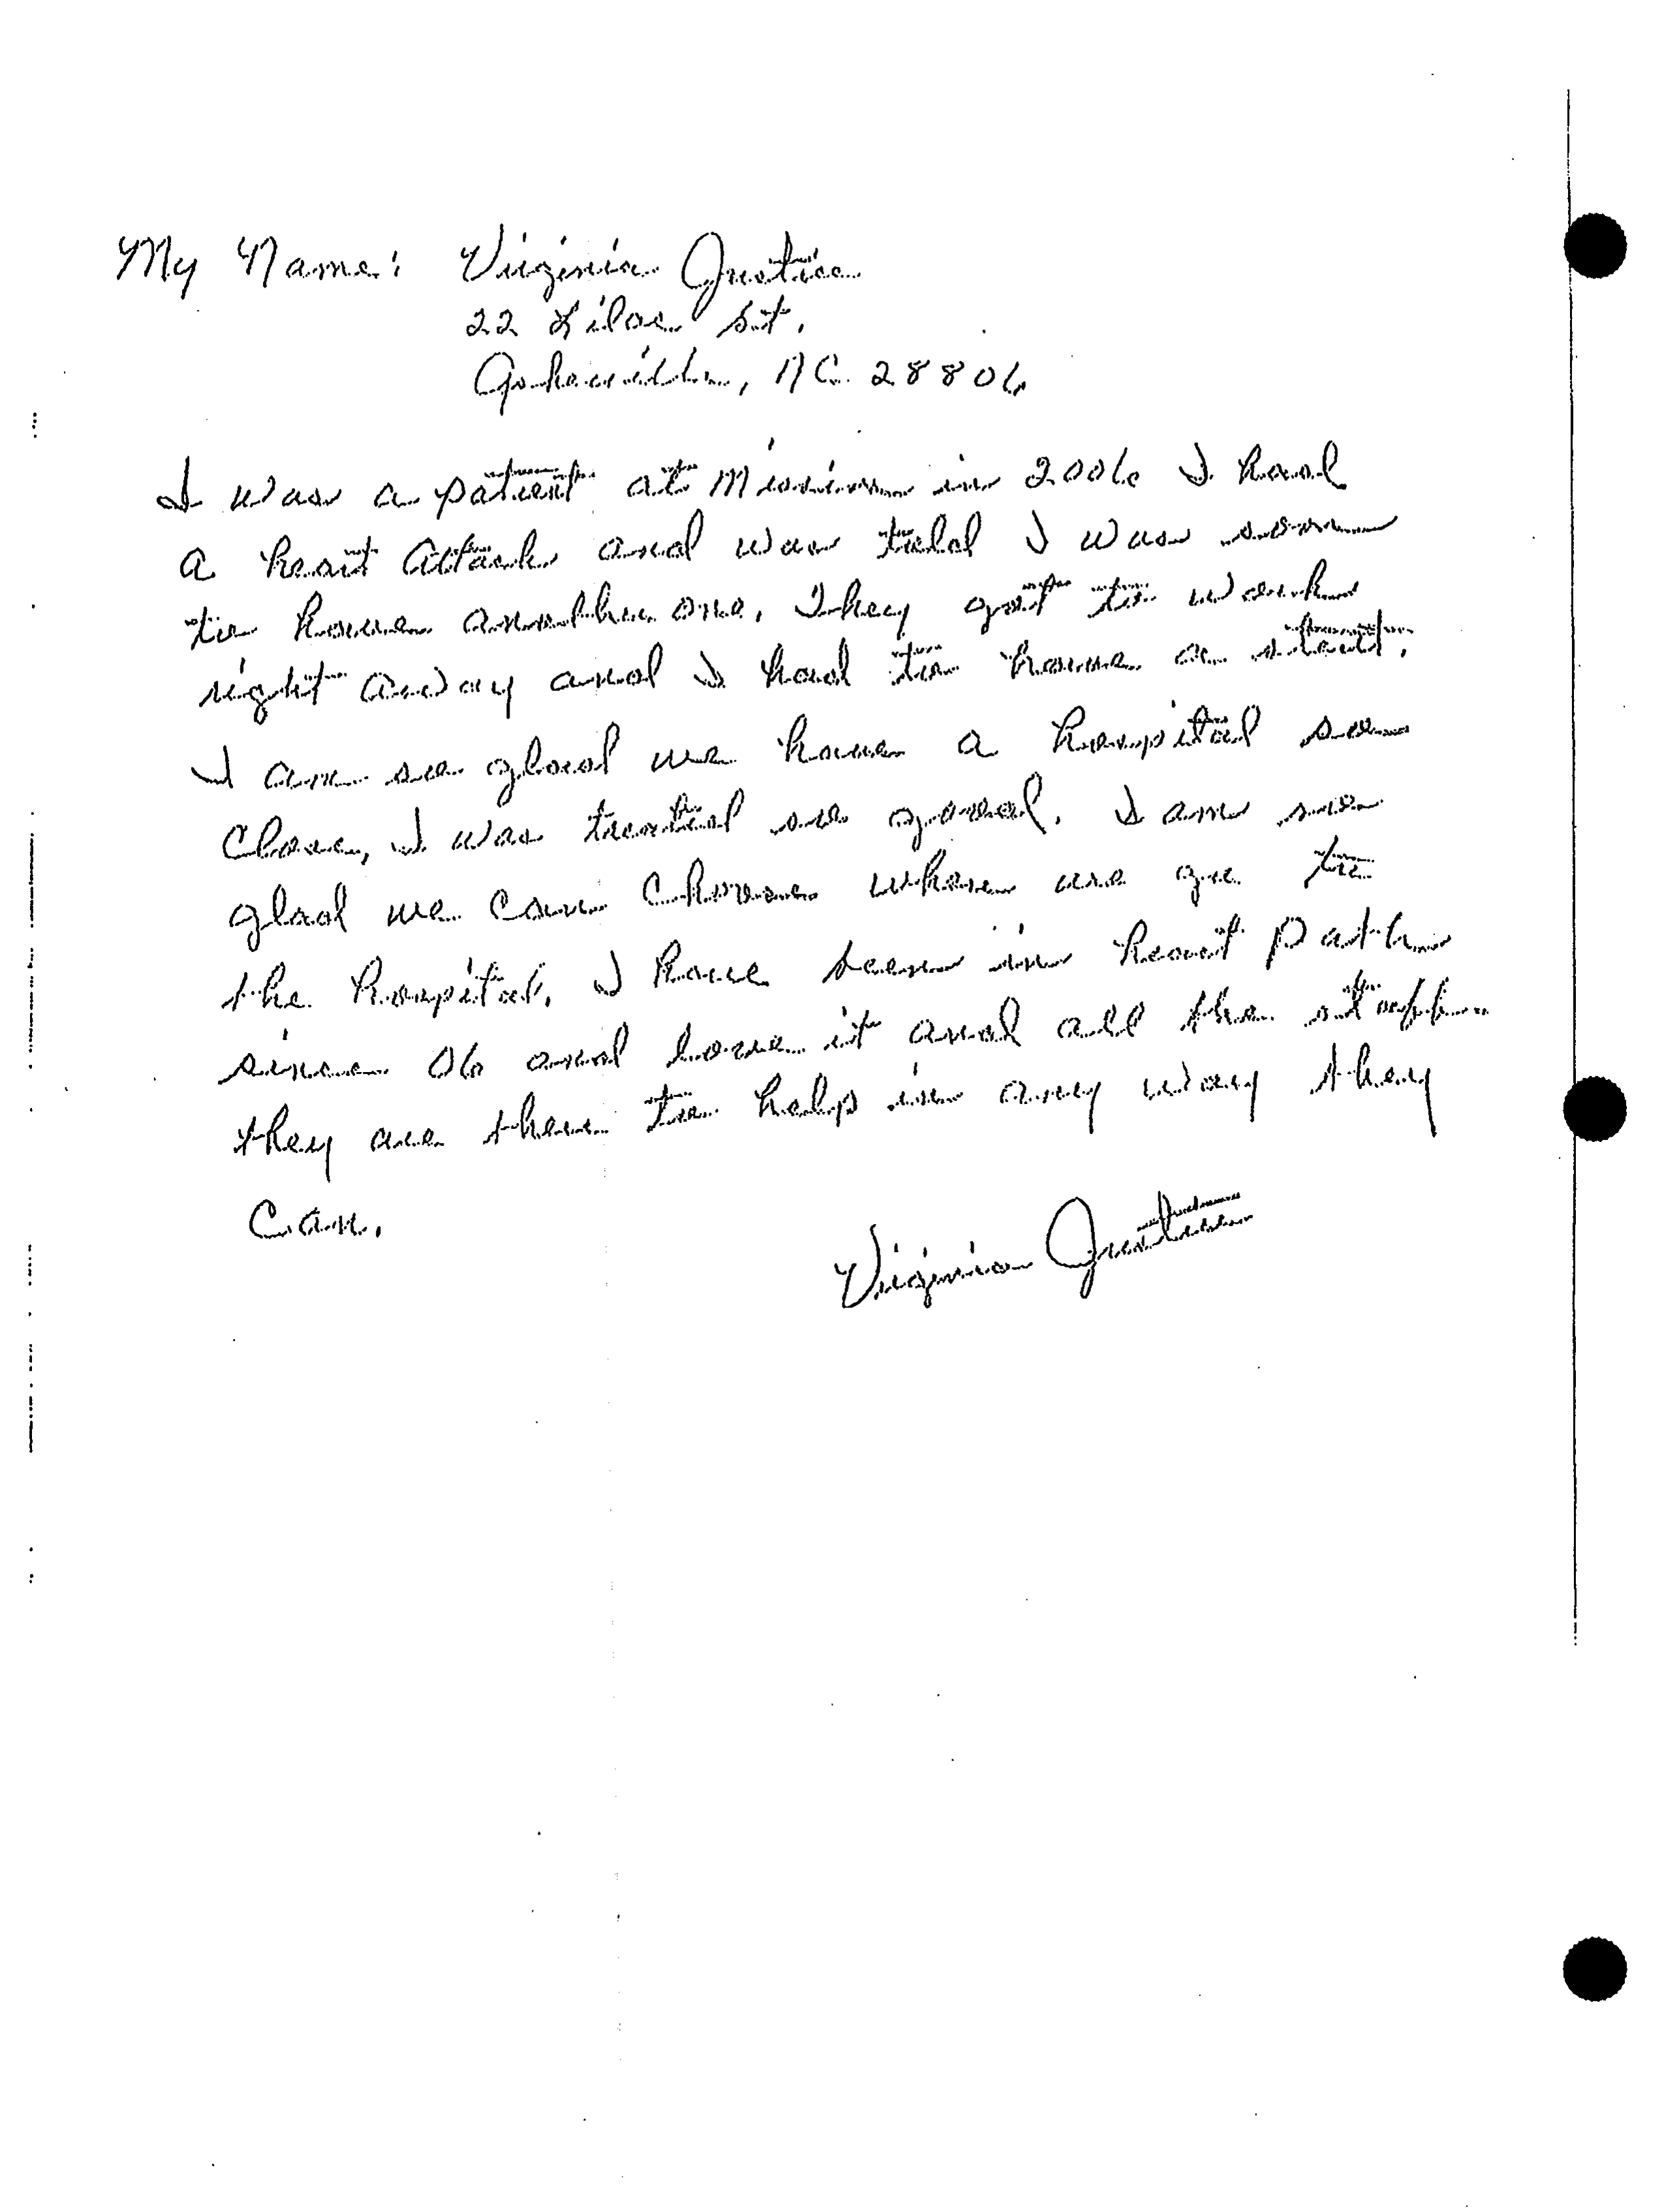 My Name: Virginia Justice
22 Lilac St.
Asheville, NC 28806
I was a patient at Mission in 2006 I had
a heart attack and was told I was
to have another one. They got to work
right away and I had to have a stent.
I am so glad we have a hospital so
close, I was treated so good. I am so
glad we can choose where we go to
the hospital. I have been in heart Path
since 06 and love it and all the staff.
they are there to help in any way they
can.
Virginia Justice